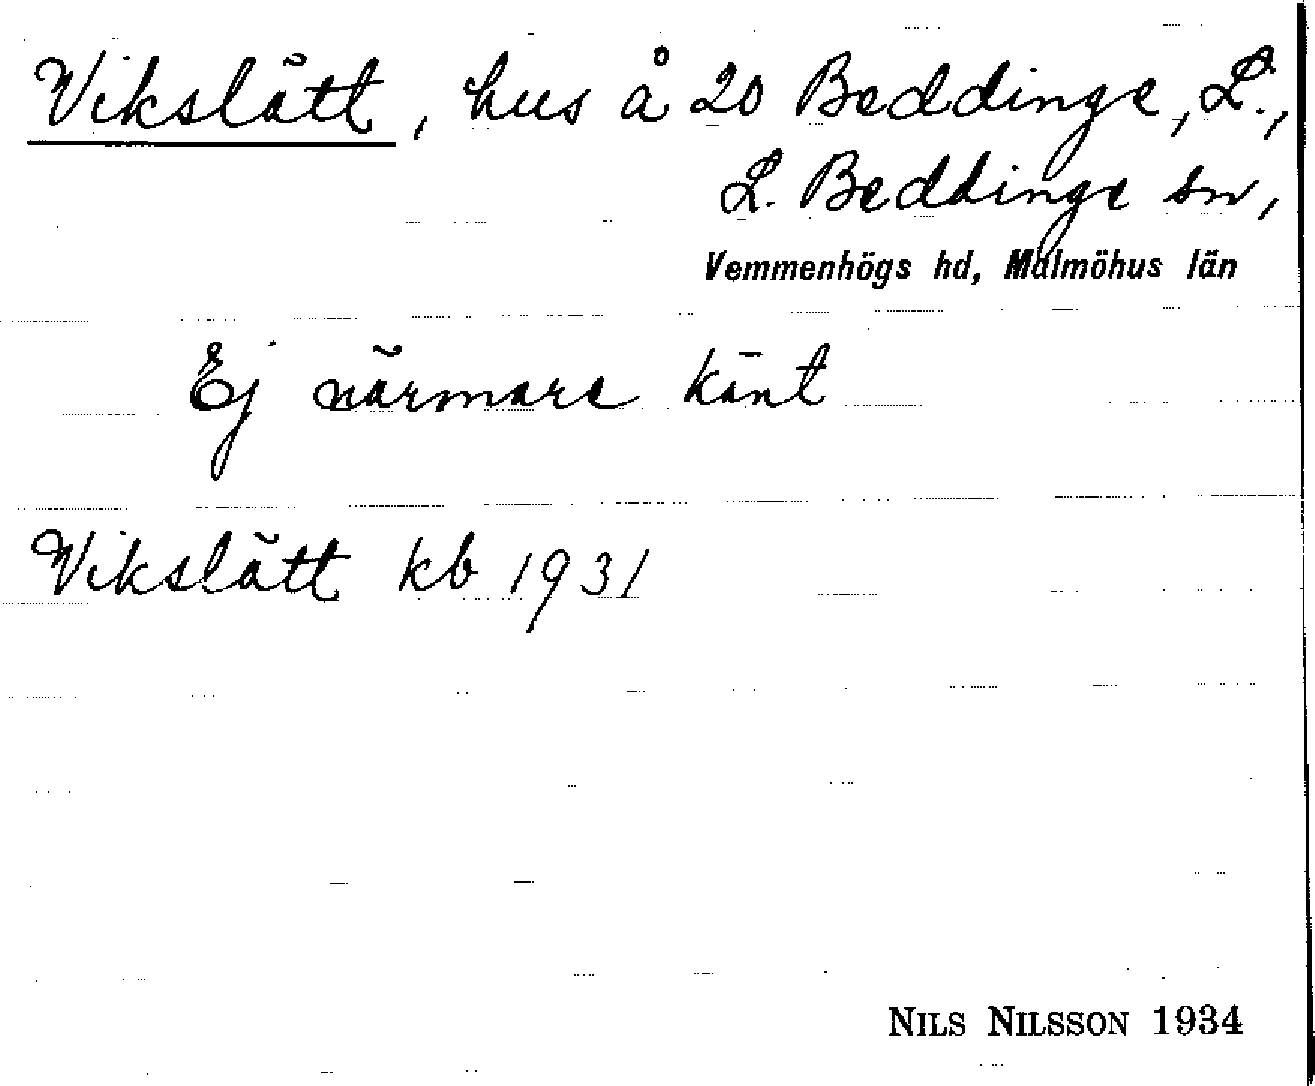 Vikslätt, hus å 20 Beddinge, L.,
L. Beddinge sn,
Vemmenhögs hd, Malmöhus län
Ej närmare känt
Vikslätt kb 1931
NILS NILSSON 1934